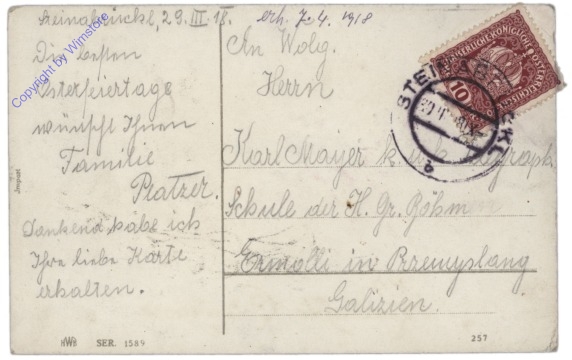 Steinabrückl, 29. III. 18.
erh. 7.4. 1918
Die besten
Osterfeiertage
wünscht Ihnen
Familie
Platzer.
Dankend habe ich
Ihre liebe Karte
erhalten.
An Wolg.
Herrn
Karl Mayer k. u. k. Telegraph.
Schule der H. Gr. Böhm
Ermolli in Przemyslany
Galizien.
KAISERLICHE KÖNIGLICHE ÖSTERREICHISCHE
10
STEINABRÜCKL
Import
SER. 1589
257
Copyright by Wimstore